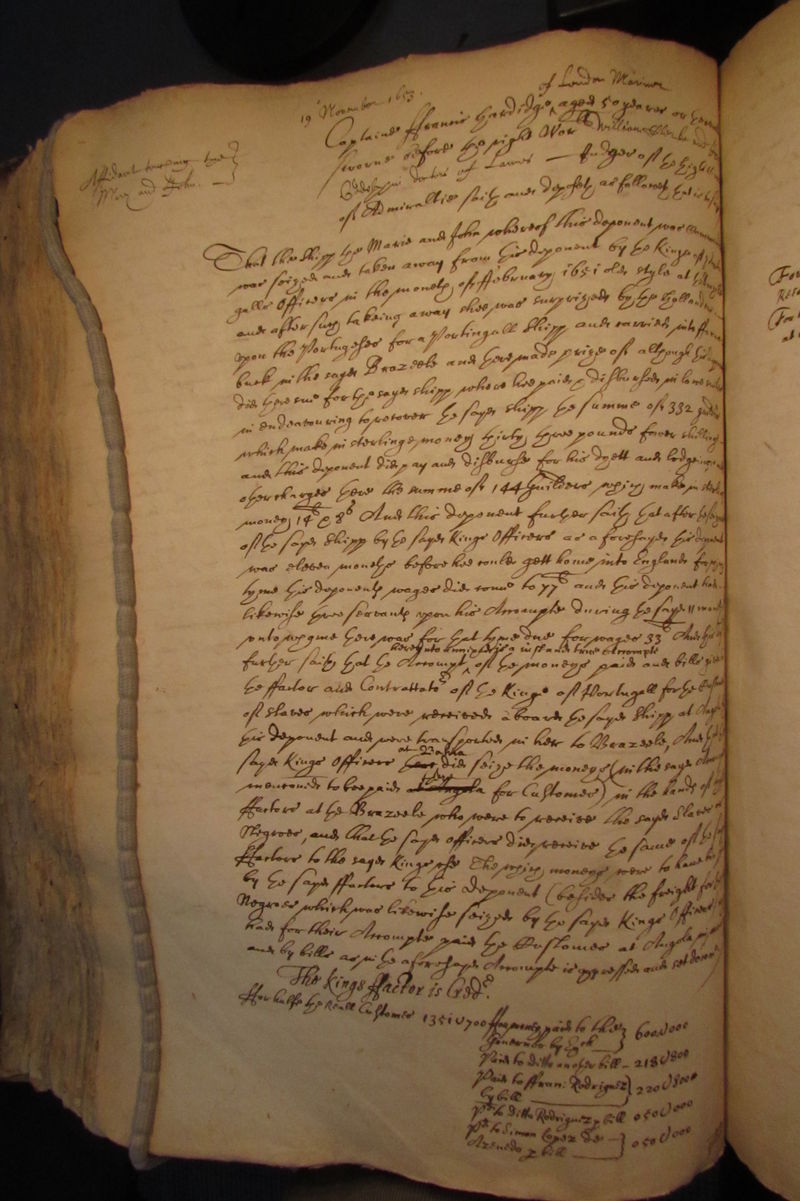 19th November 1653.
of London Mariner
Affidavit touching the
Mary and John.
Captaine ffrancis Hardidge, aged 50 yeares or
sworne before the right Wor William
Godolphin doctor of Lawes - Judges of the high
of Admiraltie saith and deposeth as followeth that is to
That the shipp the Marie and John whereof this deponent was
was seized and taken away from this deponent by the Kinge of
galls Officers in the moneth of ffebruary 1651 old style at
and after such takeing away shee was surprized by the Hollanders
upon the Portugeses for a Portingall shipp and carried into
buck in the sayd Brazeele and there made prize of although this
did there sue for the sayd shipp where hee paied & disbursed in lawe
in endeavouring to recover the sayd shipp the summe of 332 guilders
which make in sterlinge money thirty three pounds fower shillings
and this deponent did pay and disburse for his dyett and lodgeing
other charges there the summe of 144 guilders which make in
money 14li & 8s And this deponent further saith that after the
of the sayd shipp by the sayd Kings Officers as aforesayd this deponent
was eleven moneths before hee could gett home into England
tyme this deponents wages did come to 77li and this deponent had
likewise three servants upon his Accompte during the sayd 11
unto whome there was for that tyme due for wages 33li And
hereunto annexed is a just and true Accompte
further saith that the Accompt of the moneys paid and bills
the ffactor and Contractato of the Kinge of Portugall for the
of slaves which were received aboard the sayd shipp at
this deponent and were transported in her to Brazeele, And
at Bahia
sayd Kings Officers there did seize the moneys (in the sayd
mentioned to bee paied at Angola for Customes) in the hands of
ffactors at the Brazeele who were to receive the sayd slaves
Negroes, and that the sayd officers did receive the same of the
ffactors to the sayd Kings use The which moneys were to have
by the sayd ffactors to this deponent (besides the freight for
Negroes which was likewise seized by the sayd Kings Officers
had for their Accompte paid the Customes at Angola
and by bills as in the aforesayd Accompte is expressed and set downe
The Kings ffactor is Credr.
ffor halfe the Reall Customes 1351U700
money paid to the
Governor by
600U000
Paid to ditto another bill - 218U800
Paid to ffran: Rodriguez
by bill
220U800
pd. to ditto Rodriguez p bill 050U000
pd. to Simon Lopez de
Azevedo p bill
050U000